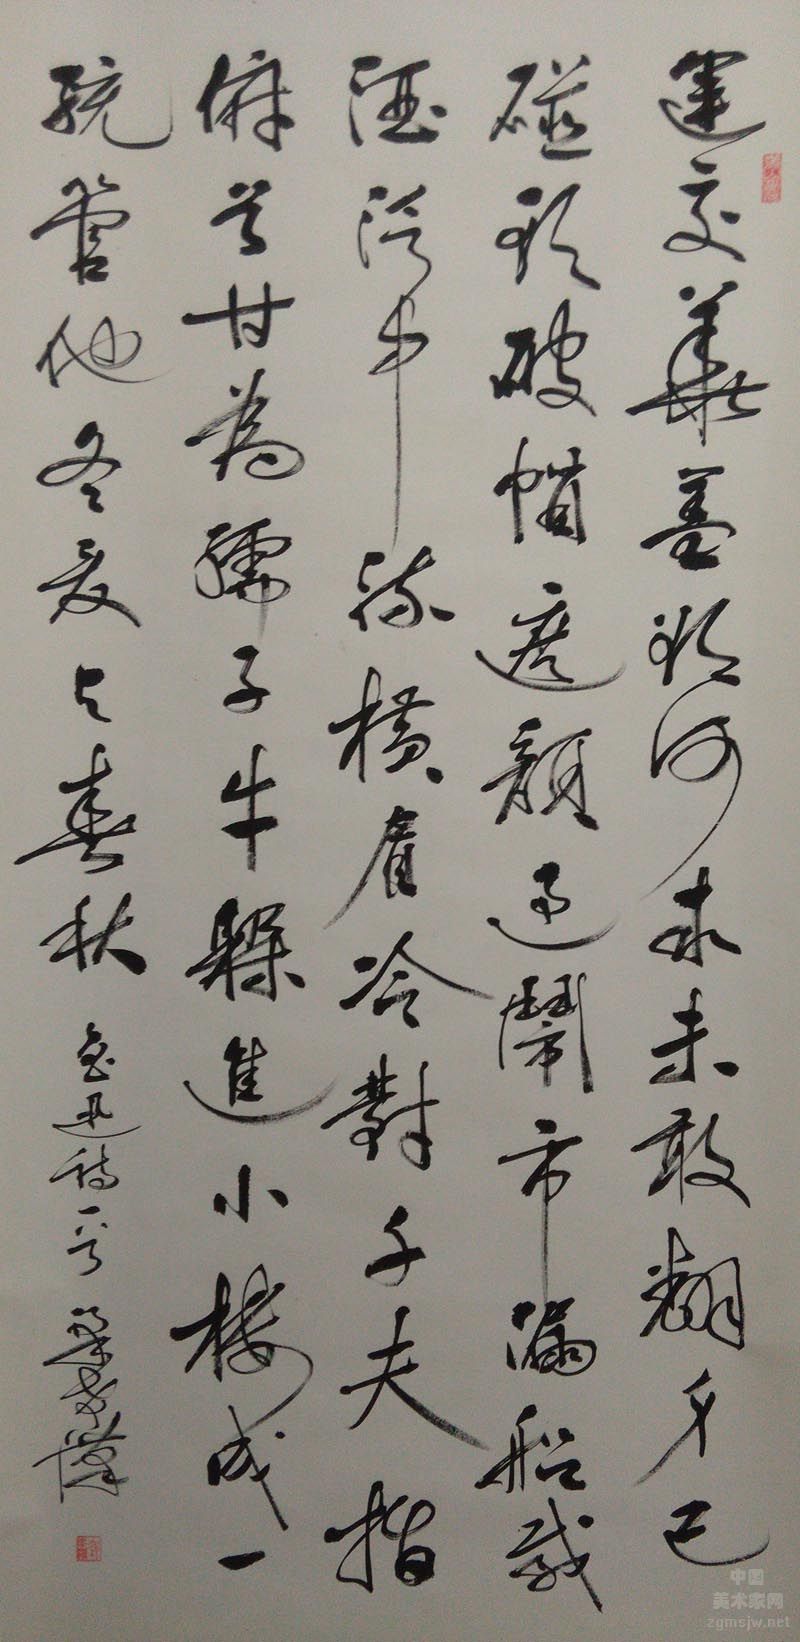 運交華蓋欲何求未敢翻身已
碰頭破帽遮顏過鬧市漏船載
酒泛中流橫眉冷對千夫指
俯首甘為孺子牛躲進小樓成一
統管他冬夏与春秋
魯迅詩一首
中国
美术家网
zgmsjw.net